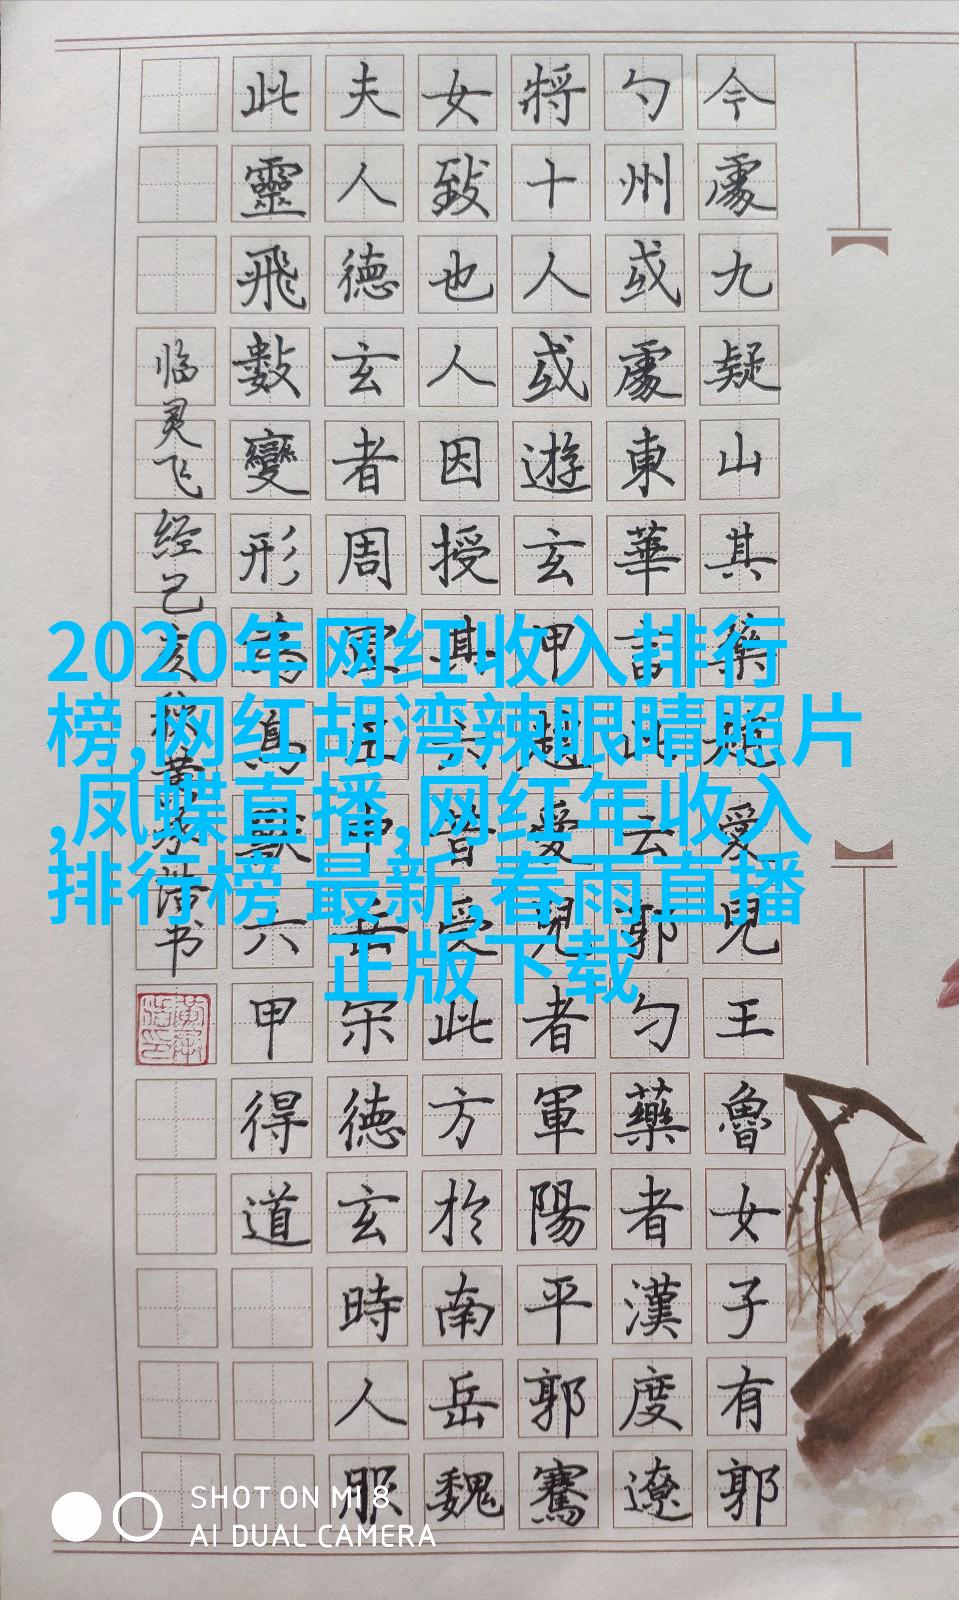 今處九疑山其藥愛兒王魯女子有郭
勺州或處東華此云郭勺藥者漢度遼
將十人或遊玄趙愛兒者軍陽平郭騫
女致也人因授其六皆受此方於南岳魏
夫人德玄者周宣王岳宋德玄時人服
此靈飛數變形為六甲得道
临灵飞经己亥秋黄书
2020年网红收入排行
榜,网红胡湾辣眼睛照片
,凤蝶直播,网红年收入
排行榜 最新,春雨直播
正版下载
SHOT ON MI 8
AI DUAL CAMERA